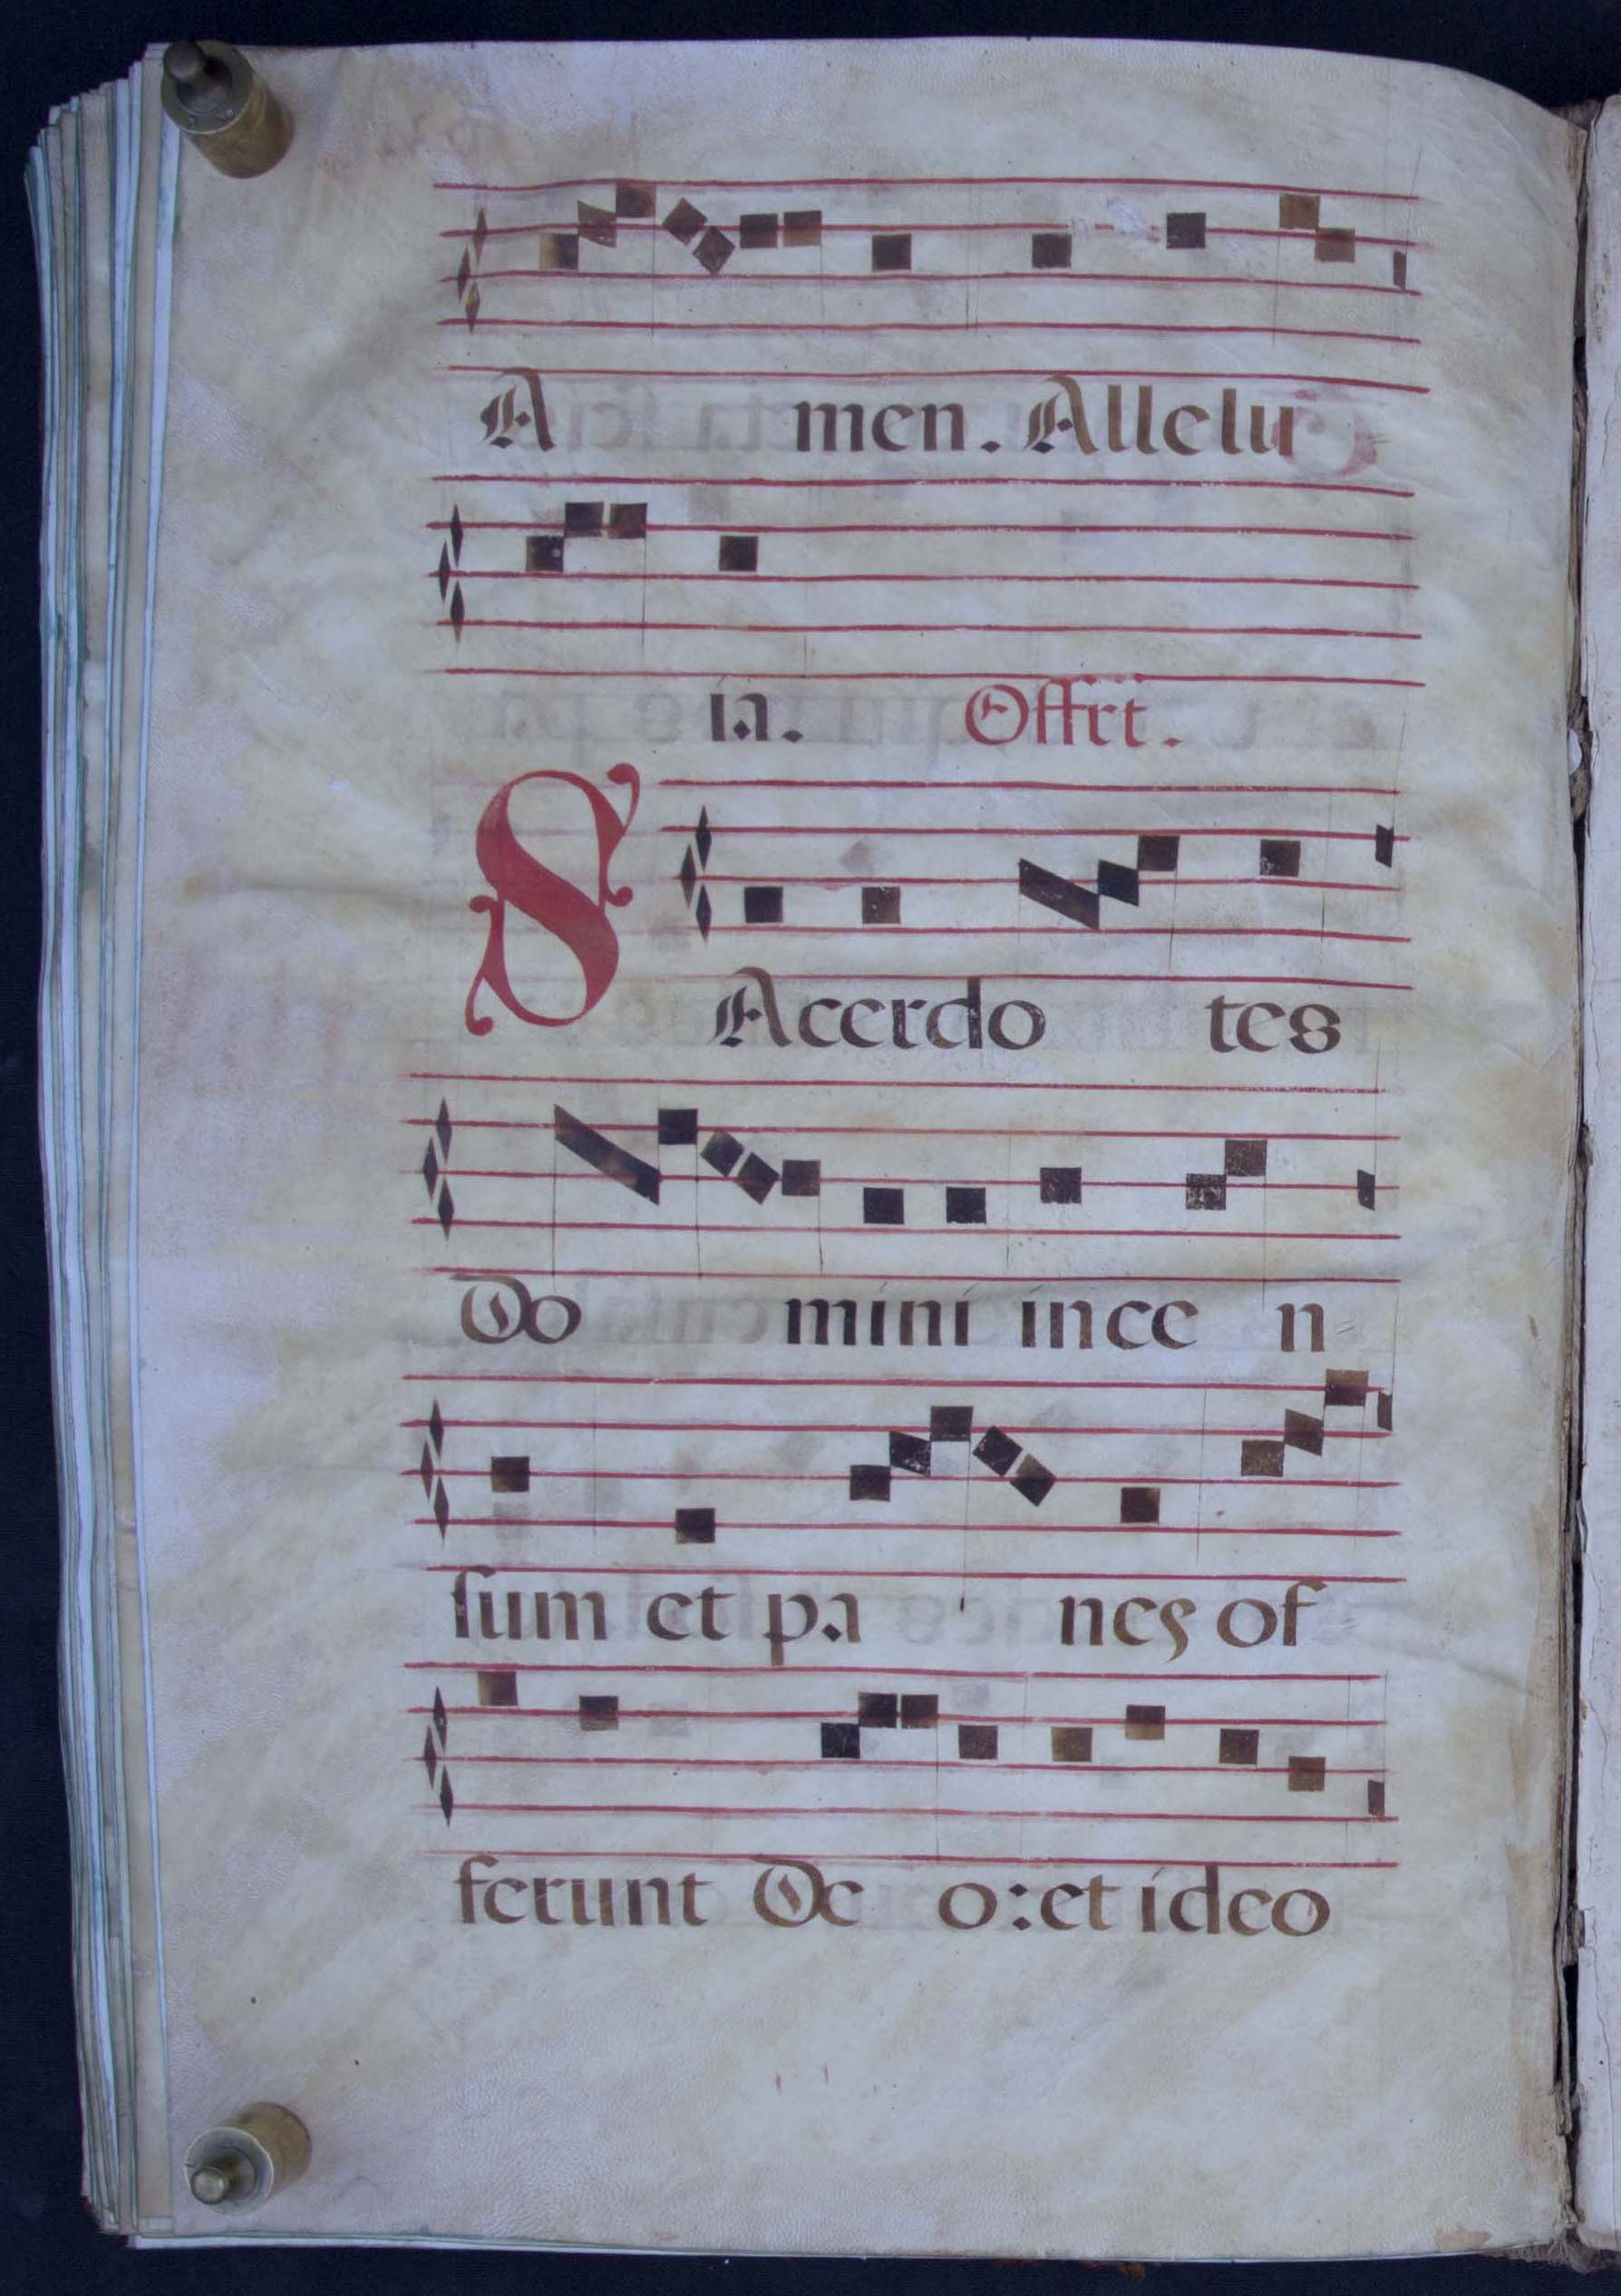 A men. Allelu
ia. Offrt.
SAcerdo tes
Do mini ince n
sum et pa nes of
ferunt De o: et ideo